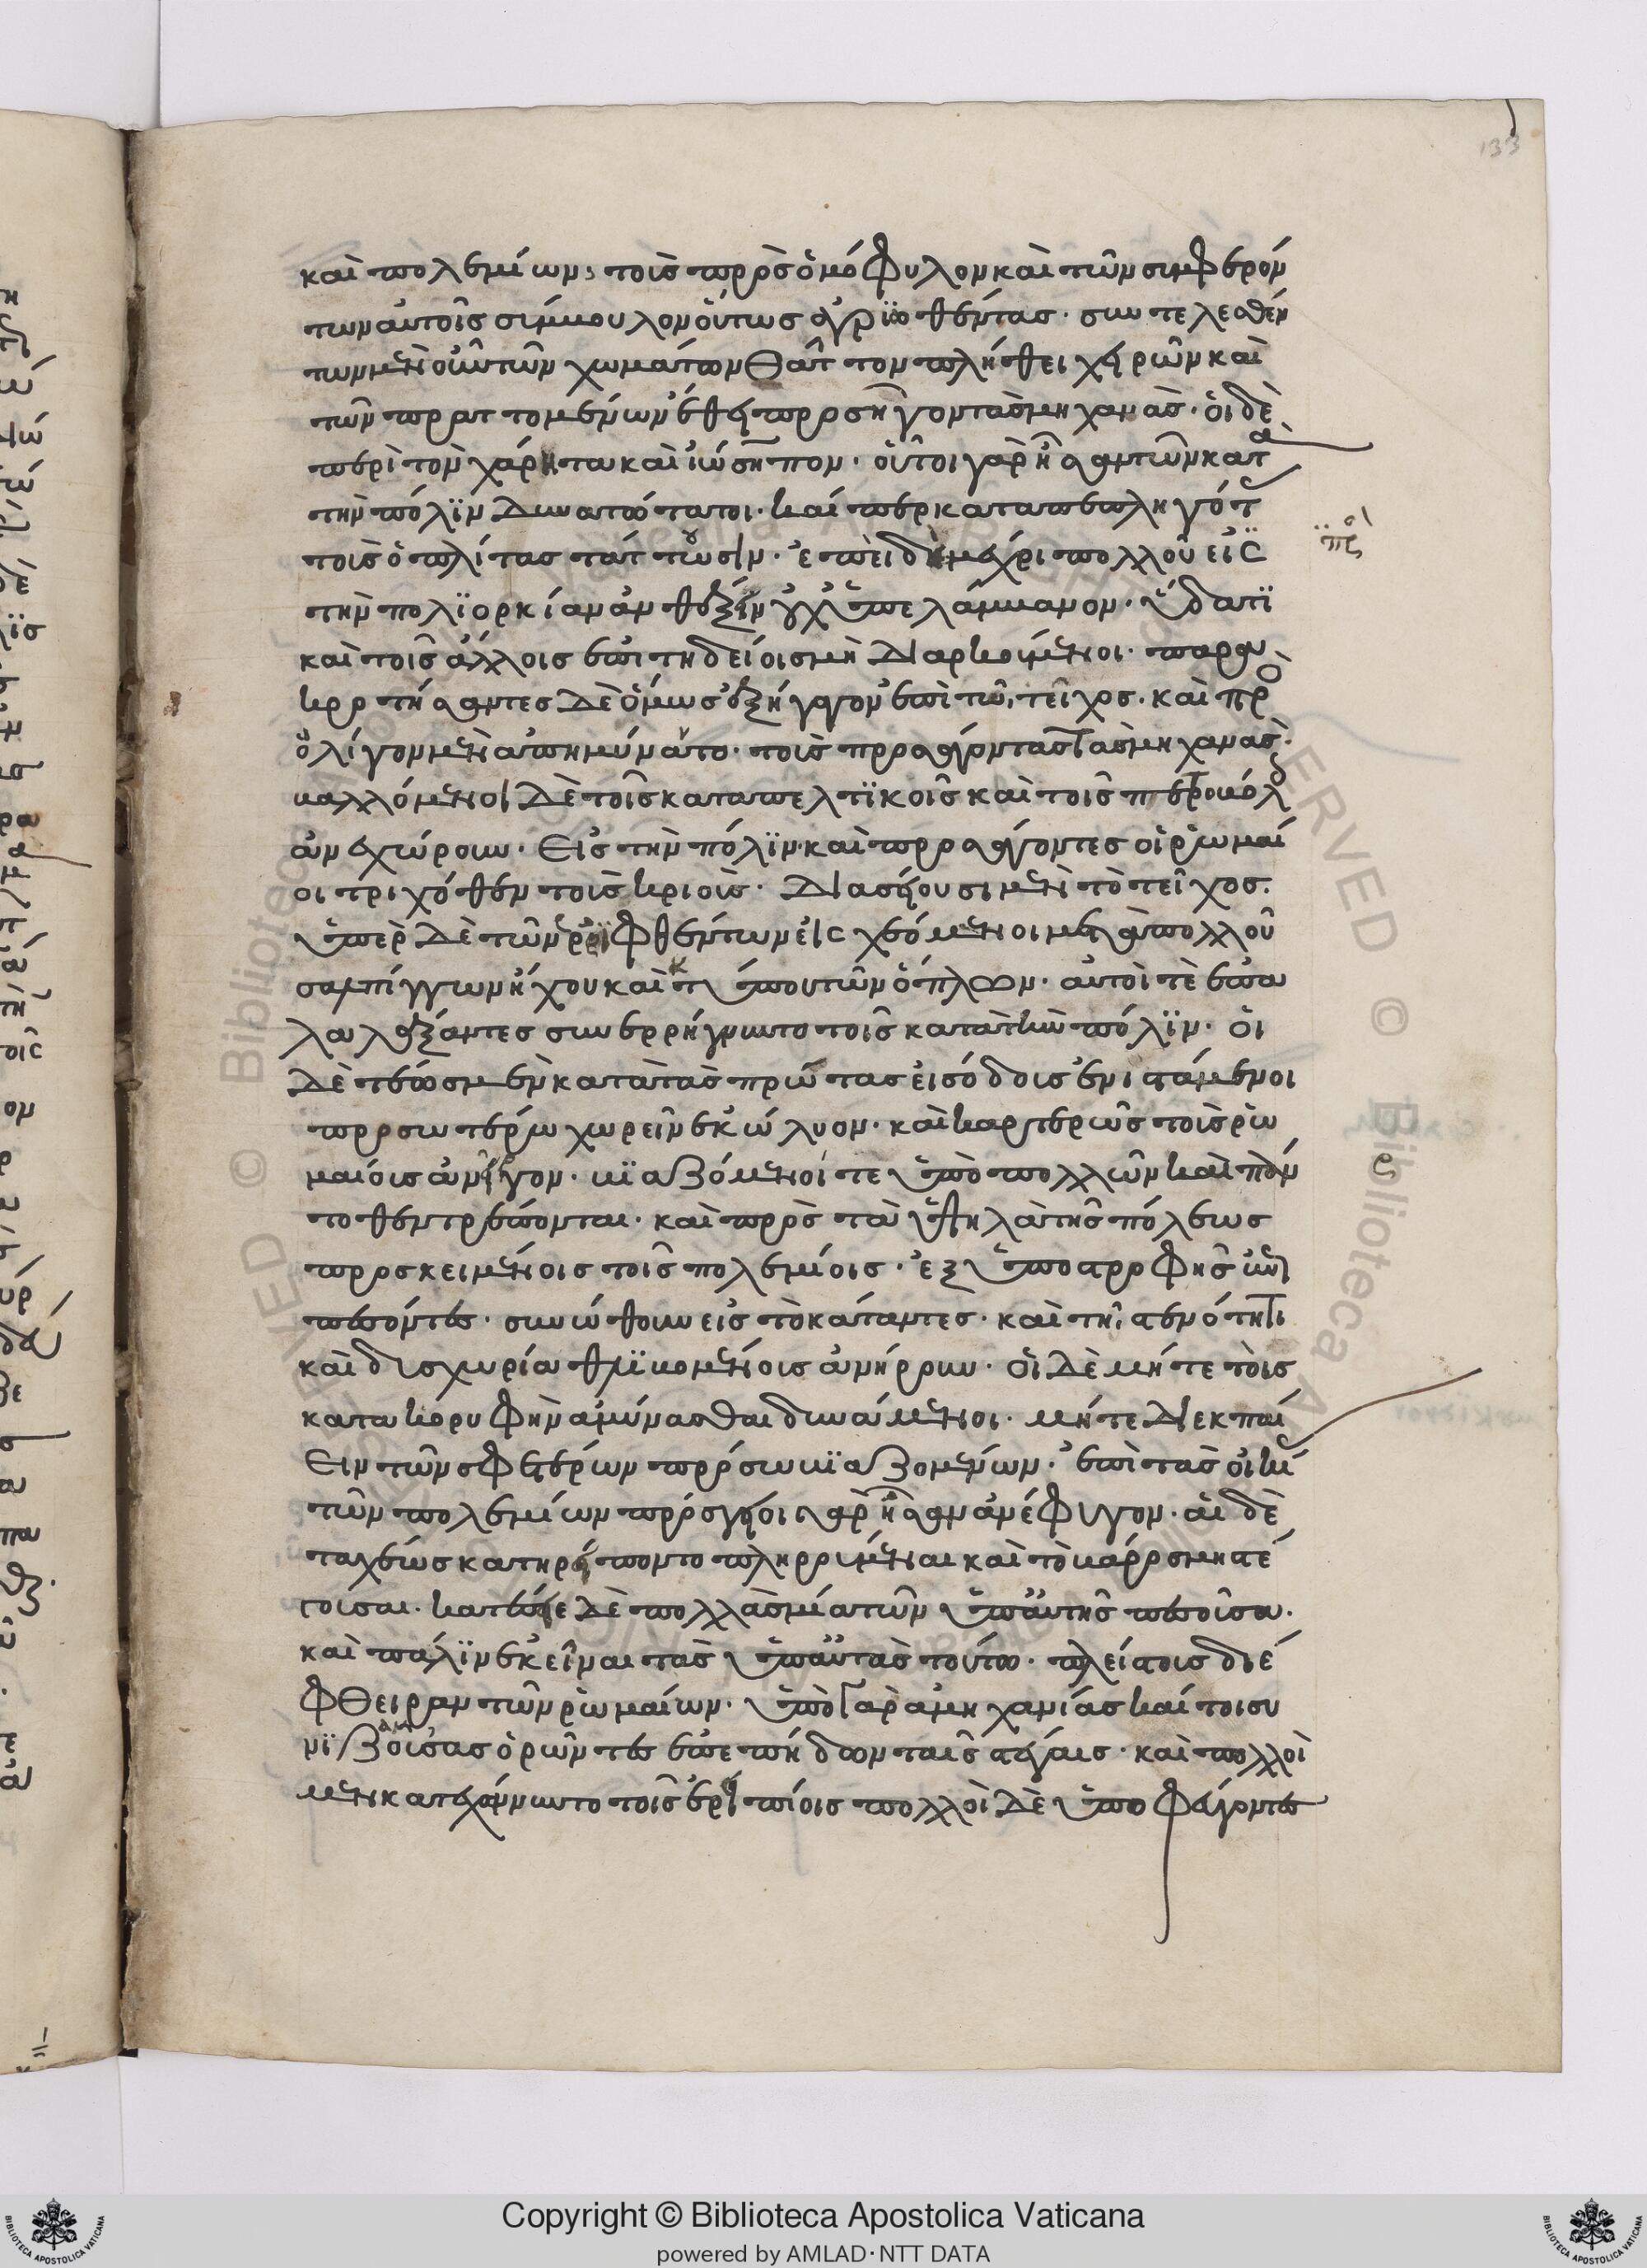 133
και πολεμίων, τοὺς πρὸς ὁμόφυλον καὶ τῶν συμφερόν
των αὐτοῖς σύμβουλον οὕτως ἀγριωθέντας· συντελεσθέν
των μὲν οὖν τῶν χωμάτων θᾶττον πλήθει χειρῶν καὶ
τῶν πραττομένων ἔθει προσῆγον τὰς μηχανάς· οἱ δὲ
περὶ τὸν χάρητα καὶ ἰώσηπον· οὗτοι γὰρ ἦσαν τῶν κατὰ
τὴν πόλϊν δυνατώτατοι· καί περ καταπεπληγότ
τοὺς ὁπλίτας τάττουσιν· ἐπειδὴ μέχρι πολλοῦ εἰς
τὴν πολϊορκίαν ἀνθέξειν οὐχ ὑπελάμβανον· ὕδατϊ
καὶ τοῖς ἄλλοις ἐπιτηδείοις μὴ διαρκούμενοι· παρα
κροτήσαντες δὲ ὅμως ἐξήγαγον ἐπὶ τὸ τεῖχος· καὶ πρὸ
ὀλίγον μὲν ἀπημύναντο· τοὺς προσάγοντας τὰς μηχανάς·
βαλλόμενοι δὲ τοῖς καταπελτϊκοῖς καὶ τοῖς πετροβόλ
ἀνεχώρουν· εἰς τὴν πόλϊν· καὶ προσάγοντες οἱ ῥωμαῖ
οι τριχόθεν τοὺς κριοὺς· διασείουσι μὲν τὸ τεῖχος·
ὑπὲρ δὲ τῶν ἐρϊφθέντων εἰσχεόμενοι μετὰ πολλοῦ
σαλπίγγων ἤχου καὶ κτύπου τῶν ὅπλων· αὐτοί τε ἐπα
λαλάξαντες συνερρήγνυντο τοῖς κατὰ τὴν πόλϊν· οἱ
δὲ τέως μὲν κατὰ τὰς πρώτας εἰσόδους ἐνιστάμενοι
προσωτέρω χωρεῖν ἐκώλυον· καὶ καρτερῶς τοὺς ῥω
μαίους ἀνεῖργον· βϊαζόμενοί τε ὑπὸ πολλῶν καὶ πάν
τοθεν τρέπονται· καὶ πρὸς τὰ ὑψηλὰ τῆς πόλεως
προσκειμένοις τοῖς πολεμίοις· ἐξ ὑποστροφῆς ἐμ
πεσόντες· συνώθουν εἰς τὸ κάταντες· καὶ τῆ στενότητι
καὶ δυσχωρία θλϊβομένους ἀνήρουν· οἱ δὲ μήτε τοὺς
κατὰ κορυφὴν ἀμύνασθαι δυνάμενοι· μήτε διεκπαί
ειν τῶν σφετέρων πρόσω βϊαζομένων· ἐπὶ τὰς οἰκί
τῶν πολεμίων πρόσγειοι γὰρ ἦσαν ἀνέφυγον· αἱ δὲ
ταχέως κατηρείποντο πληρούμεναι καὶ τὸ βάρος μὴ στέ
γουσαι· κατέσειε δὲ πολλὰς μία τῶν ὑπ' αὐτῆς πεσοῦσα·
καὶ πάλϊν ἐκεῖναι τὰς ὑπ' αὐτὰς τοῦτο· πλείστους διέ
φθειραν τῶν ῥωμαίων· ὑπὸ γὰρ ἀμηχανίας καί τοι συ
νϊζανούσας ὁρῶντες ἐπεπήδων ταῖς στέγαις· καὶ πολλοὶ
μὲν κατεχώννυντο τοῖς ἐρειπίοις πολλοὶ δὲ ὑποφεύγοντες